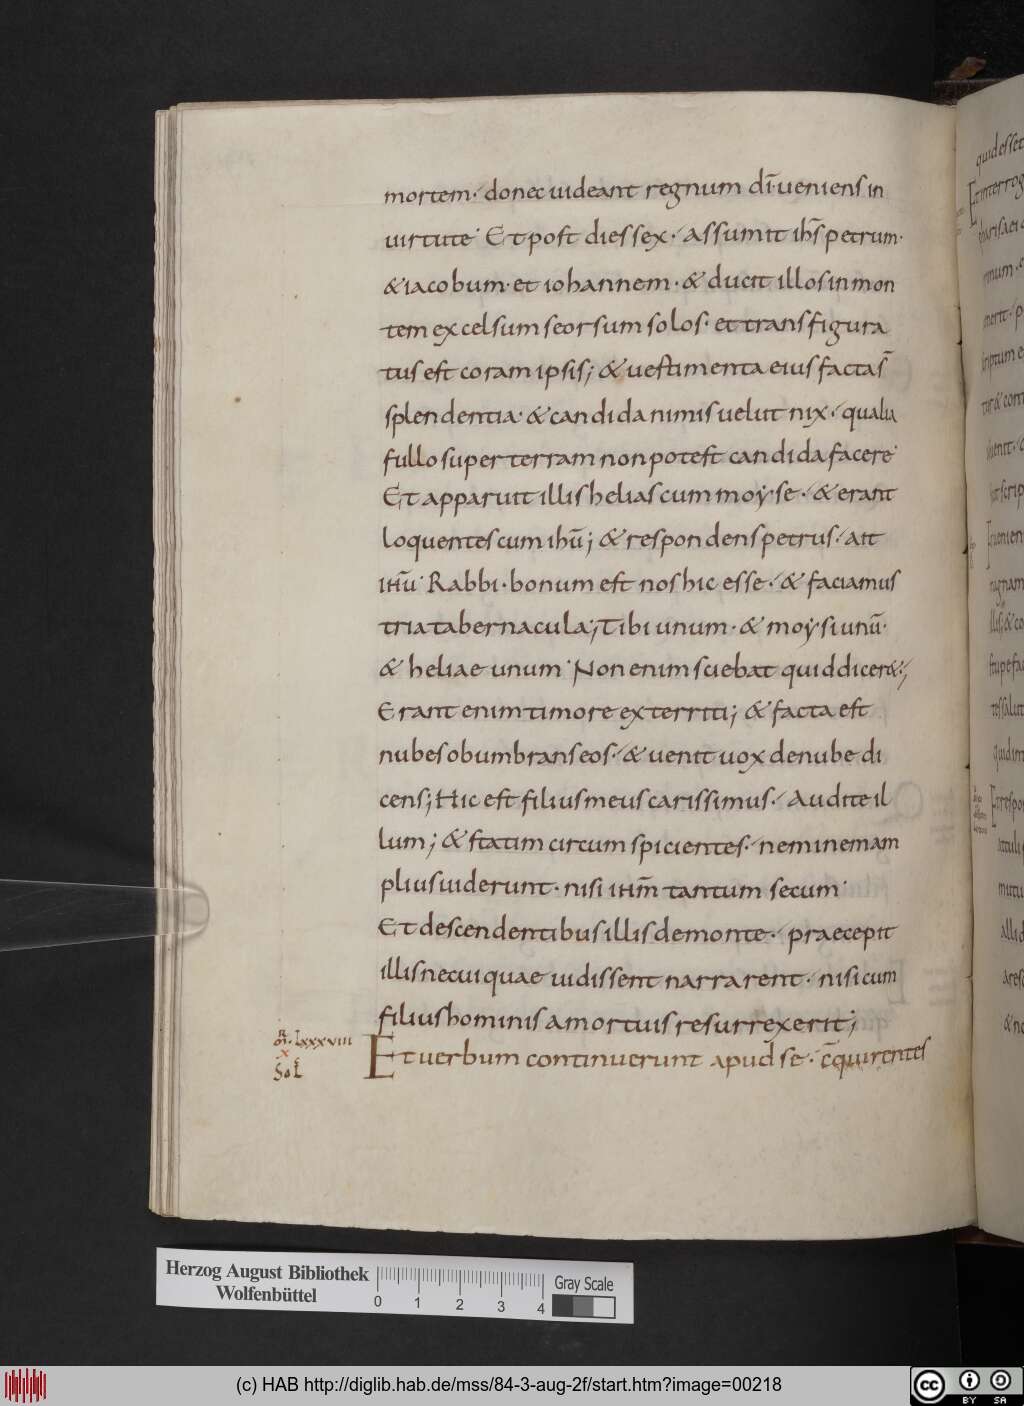 mortem· donec uideant regnum dī· ueniens in
uirtute· Et post dies sex· assumit ihs̄ petrum·
& iacobum· et iohannem· & ducit illos in mon
tem excelsum seorsum solos· et transfigura
tus est coram ipsis; & uestimenta eius facta s̄
splendentia· & candida nimis uelut nix· qualia
fullo super terram non potest candida facere·
Et apparuit illis helias cum moẏse· & erant
loquentes cum ihū; & respondens petrus· ait
ihū· Rabbi· bonum est nos hic esse· & faciamus
tria tabernacula; Tibi unum· & moẏsi unū·
& heliae unum· Non enim sciebat quid dicer&;
Erant enim timore exterriti; & facta est
nubes obumbrans eos· & uenit uox de nube di
cens; Hic est filius meus carissimus· Audite il
lum; & statim circumspicientes· neminem am
plius uiderunt· nisi ihm̄ tantum secum·
Et descendentibus illis de monte· praecepit
illis ne cui quae uidissent narrarent· nisi cum
filius hominis a mortuis resurrexerit;
Et uerbum continuerunt apud se· c̄quirentes
R
m· lxxxviii
x
Sol
quid esset
Et interrog
pharisaei
Herzog August Bibliothek
Wolfenbüttel
0 1 2 3 4
Gray Scale
(c) HAB http://diglib.hab.de/mss/84-3-aug-2f/start.htm?image=00218
cc BY SA